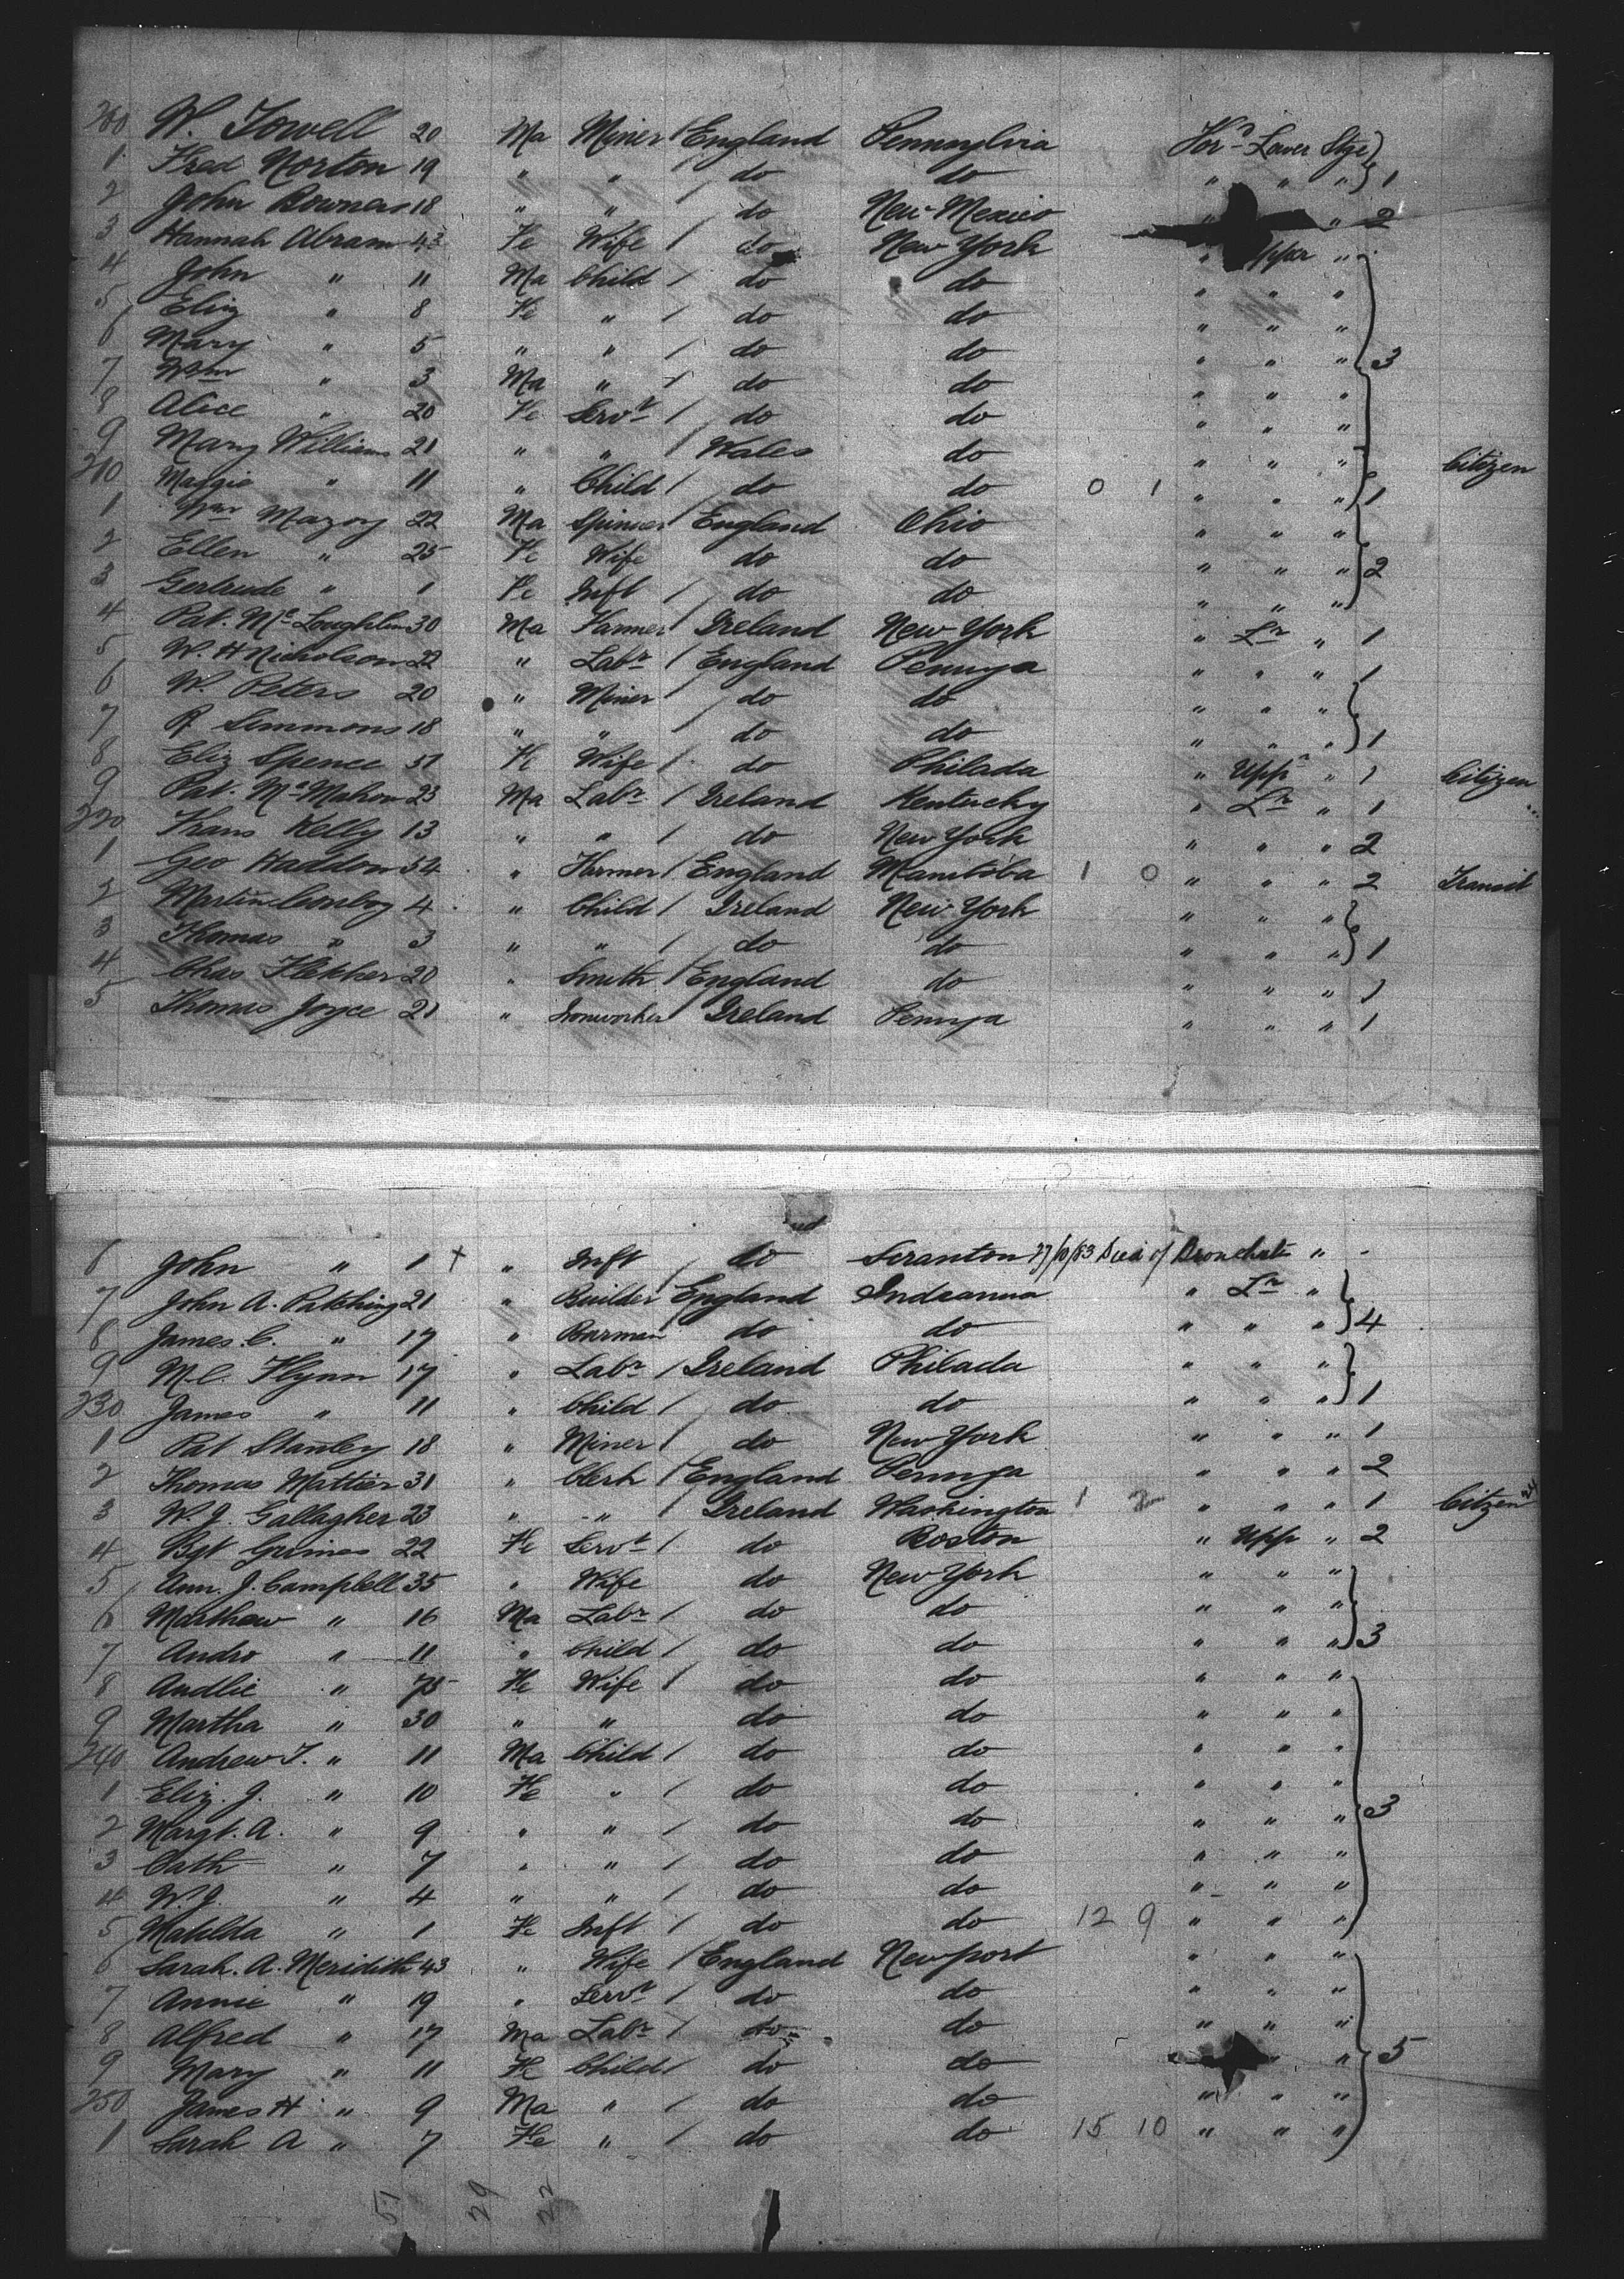 200 W. Jowell 20 Ma Miner / England Pennsylvia For'd Lower Stge
1 Fred Norton 19 " " / do do " " " } 1
2 John Bownas 18 " " / do New Mexico " " 2
3 Hannah Abram 43 Fe Wife / do New York " Upper "
4 John " 11 Ma Child / do do " " "
5 Eliz " 8 Fe " / do do " " "
6 Mary " 5 " " / do do " " " } 3
7 Wm " 3 Ma " / do do " " "
8 Alice " 20 Fe Servt / do do " " "
9 Mary Williams 21 " " / Wales do " " " Citizen
210 Maggie " 11 " Child / do do 0 1 " " " } 1
1 Wm Mazoy 22 Ma Spinner / England Ohio " " "
2 Ellen " 25 Fe Wife do do " " " } 2
3 Gertrude " 1 Fe Inft / do do " " "
4 Pat. Mc Loughlin 30 Ma Farmer / Ireland New York " Lr " 1
5 W. H Nicholson 22 " Labr / England Pennya " " " 1
6 W. Peters 20 " Miner / do do " " "
7 R Simmons 18 " " / do do " " " } 1
8 Eliz Spence 51 Fe Wife / do Philada " Uppr " 1 Citizen
9 Pat. Mc Mahon 23 Ma Labr / Ireland Kentucky " Lr " 1
220 Thans Kelly 13 " " / do New York " " " 2
1 Geo Haddon 54 " Farmer / England Manitoba 1 0 " " " 2 Transit
2 Martin Conboy 4 " Child / Ireland New York " " "
3 Thomas " 3 " " / do do " " " } 1
4 Chas Fletcher 20 " Smith / England do " " " 1
5 Thomas Joyce 21 " Ironworker / Ireland Pennya " " " 1
6 John " 1 + " Inft / do Scranton 27/10/83 Died of Bronchitis "
7 John A. Patching 21 " Builder England Indeanna " Lr "
8 James. C. " 17 " Barman do do " " " } 4
9 Ml. Flynn 17 " Labr / Ireland Philada " " "
230 James " 11 " Child / do do " " " } 1
1 Pat Stanley 18 " Miner / do New York " " " 1
2 Thomas Mattier 31 " Clerk / England Pennya " " " 2
3 W. J. Gallagher 23 " " / Ireland Washington 1 2 " " " 1 Citizen
4 Bgt Grimes 22 Fe Servt / do Boston " Upp " 2
5 Ann. J. Campbell 35 " Wife do New York " " "
6 Marthew " 16 Ma Labr / do do " " "
7 Andro " 11 " Child / do do " " " } 3
8 Audlie " 75 Fe Wife / do do " " "
9 Martha " 30 " " do do " " "
240 Andrew J. " 11 Ma Child / do do " " "
1 Eliz. J. " 10 Fe " / do do " " "
2 Margt. A. " 9 " " / do do " " " } 3
3 Cath " 7 " " / do do " " "
4 W. J. " 4 " " / do do " " "
5 Matilda " 1 Fe Inft / do do 12 9 " " "
6 Sarah. A. Meridith 43 " Wife / England Newport " " "
7 Annie " 19 " Servt / do do " " "
8 Alfred " 17 Ma Labr / do do " " "
9 Mary " 11 Fe Child / do do " " } 5
250 James H " 9 Ma " / do do " " "
1 Sarah A " 7 Fe " / do do 15 10 " " "
51 29 22